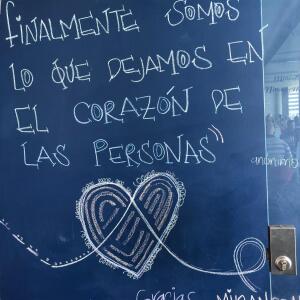 FINALMENTE SOMOS
LO QUE DEJAMOS EN
EL CORAZÓN DE
LAS PERSONAS"
anónimo
Gracias